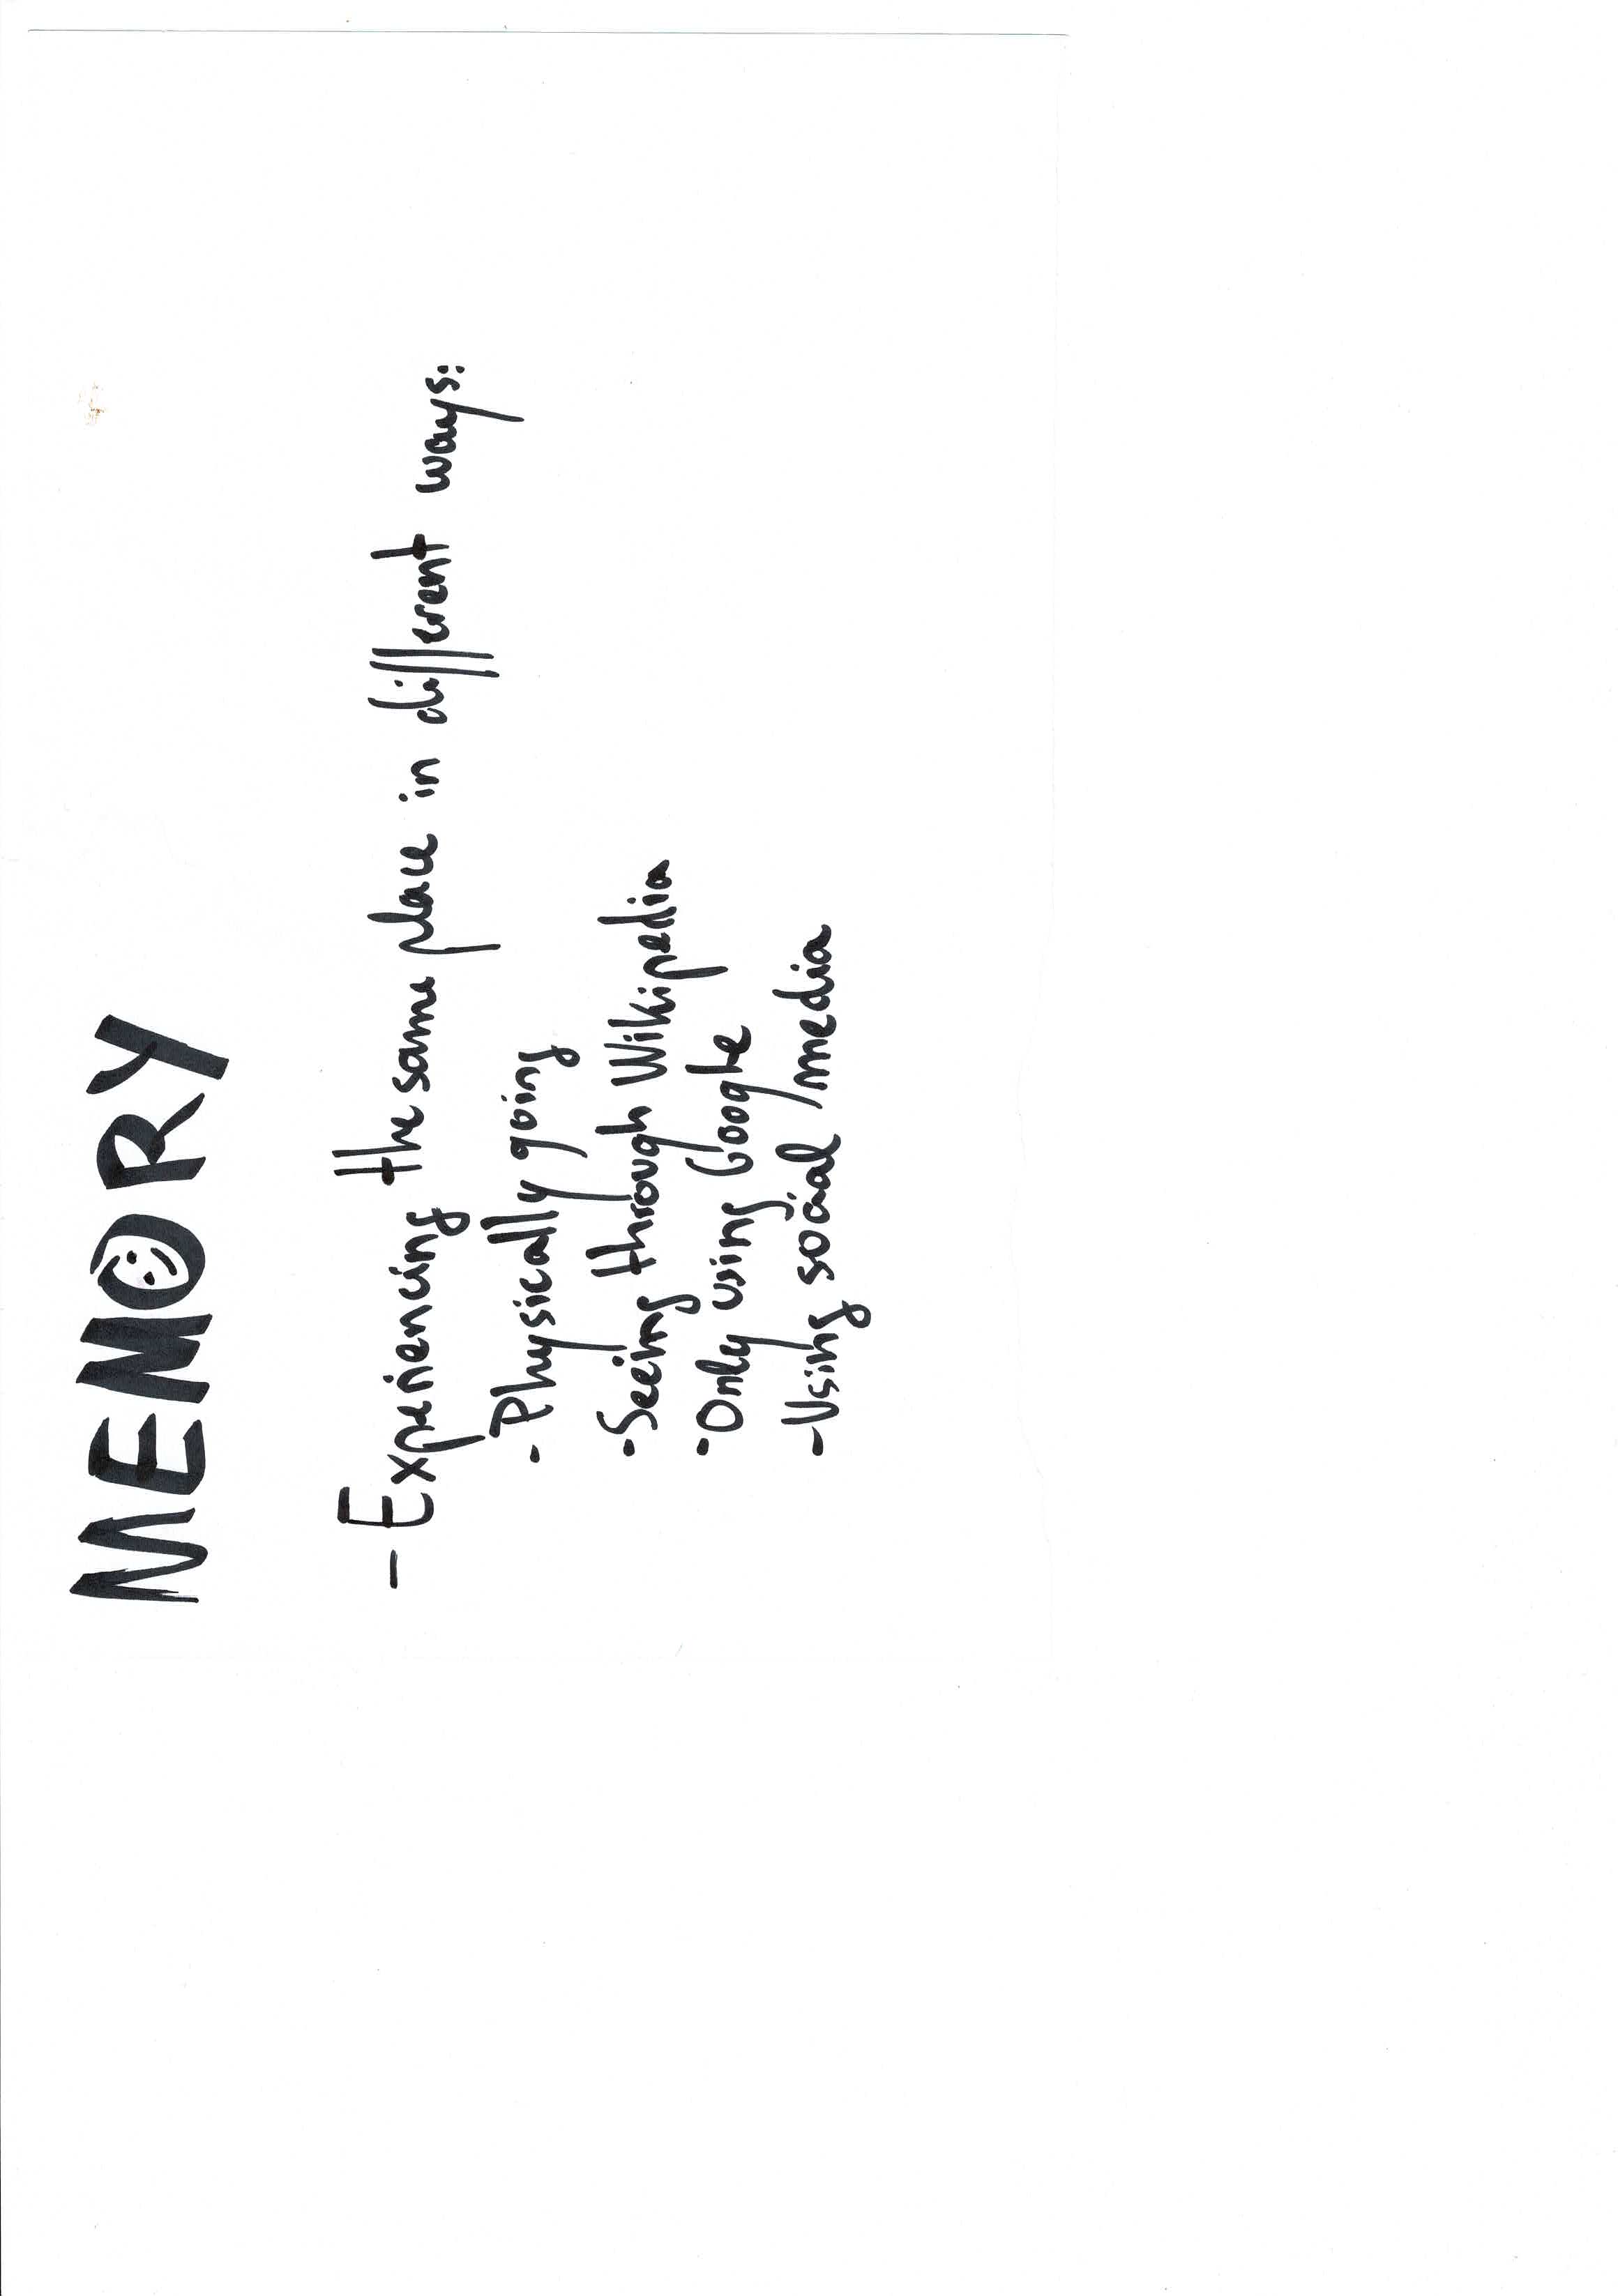 MEMORY
- Experiencing the same place in different ways:
- Physically going
- Seeing through Wikipedia
- Only using Google
- Using social media